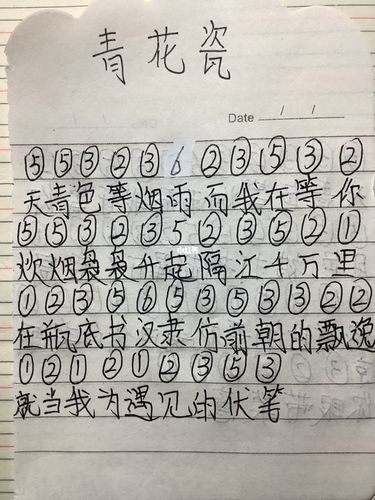 青花瓷
Date / /
⑤⑤③②③6②③⑤③②
天青色等烟雨而我在等你
⑤⑤③②③5②③⑤②①
炊烟袅袅升起隔江千万里
①②③⑤⑥⑤③⑤③③②②
在瓶底书汉隶仿前朝的飘逸
①②①②①②③⑤③
就当我为遇见的伏笔